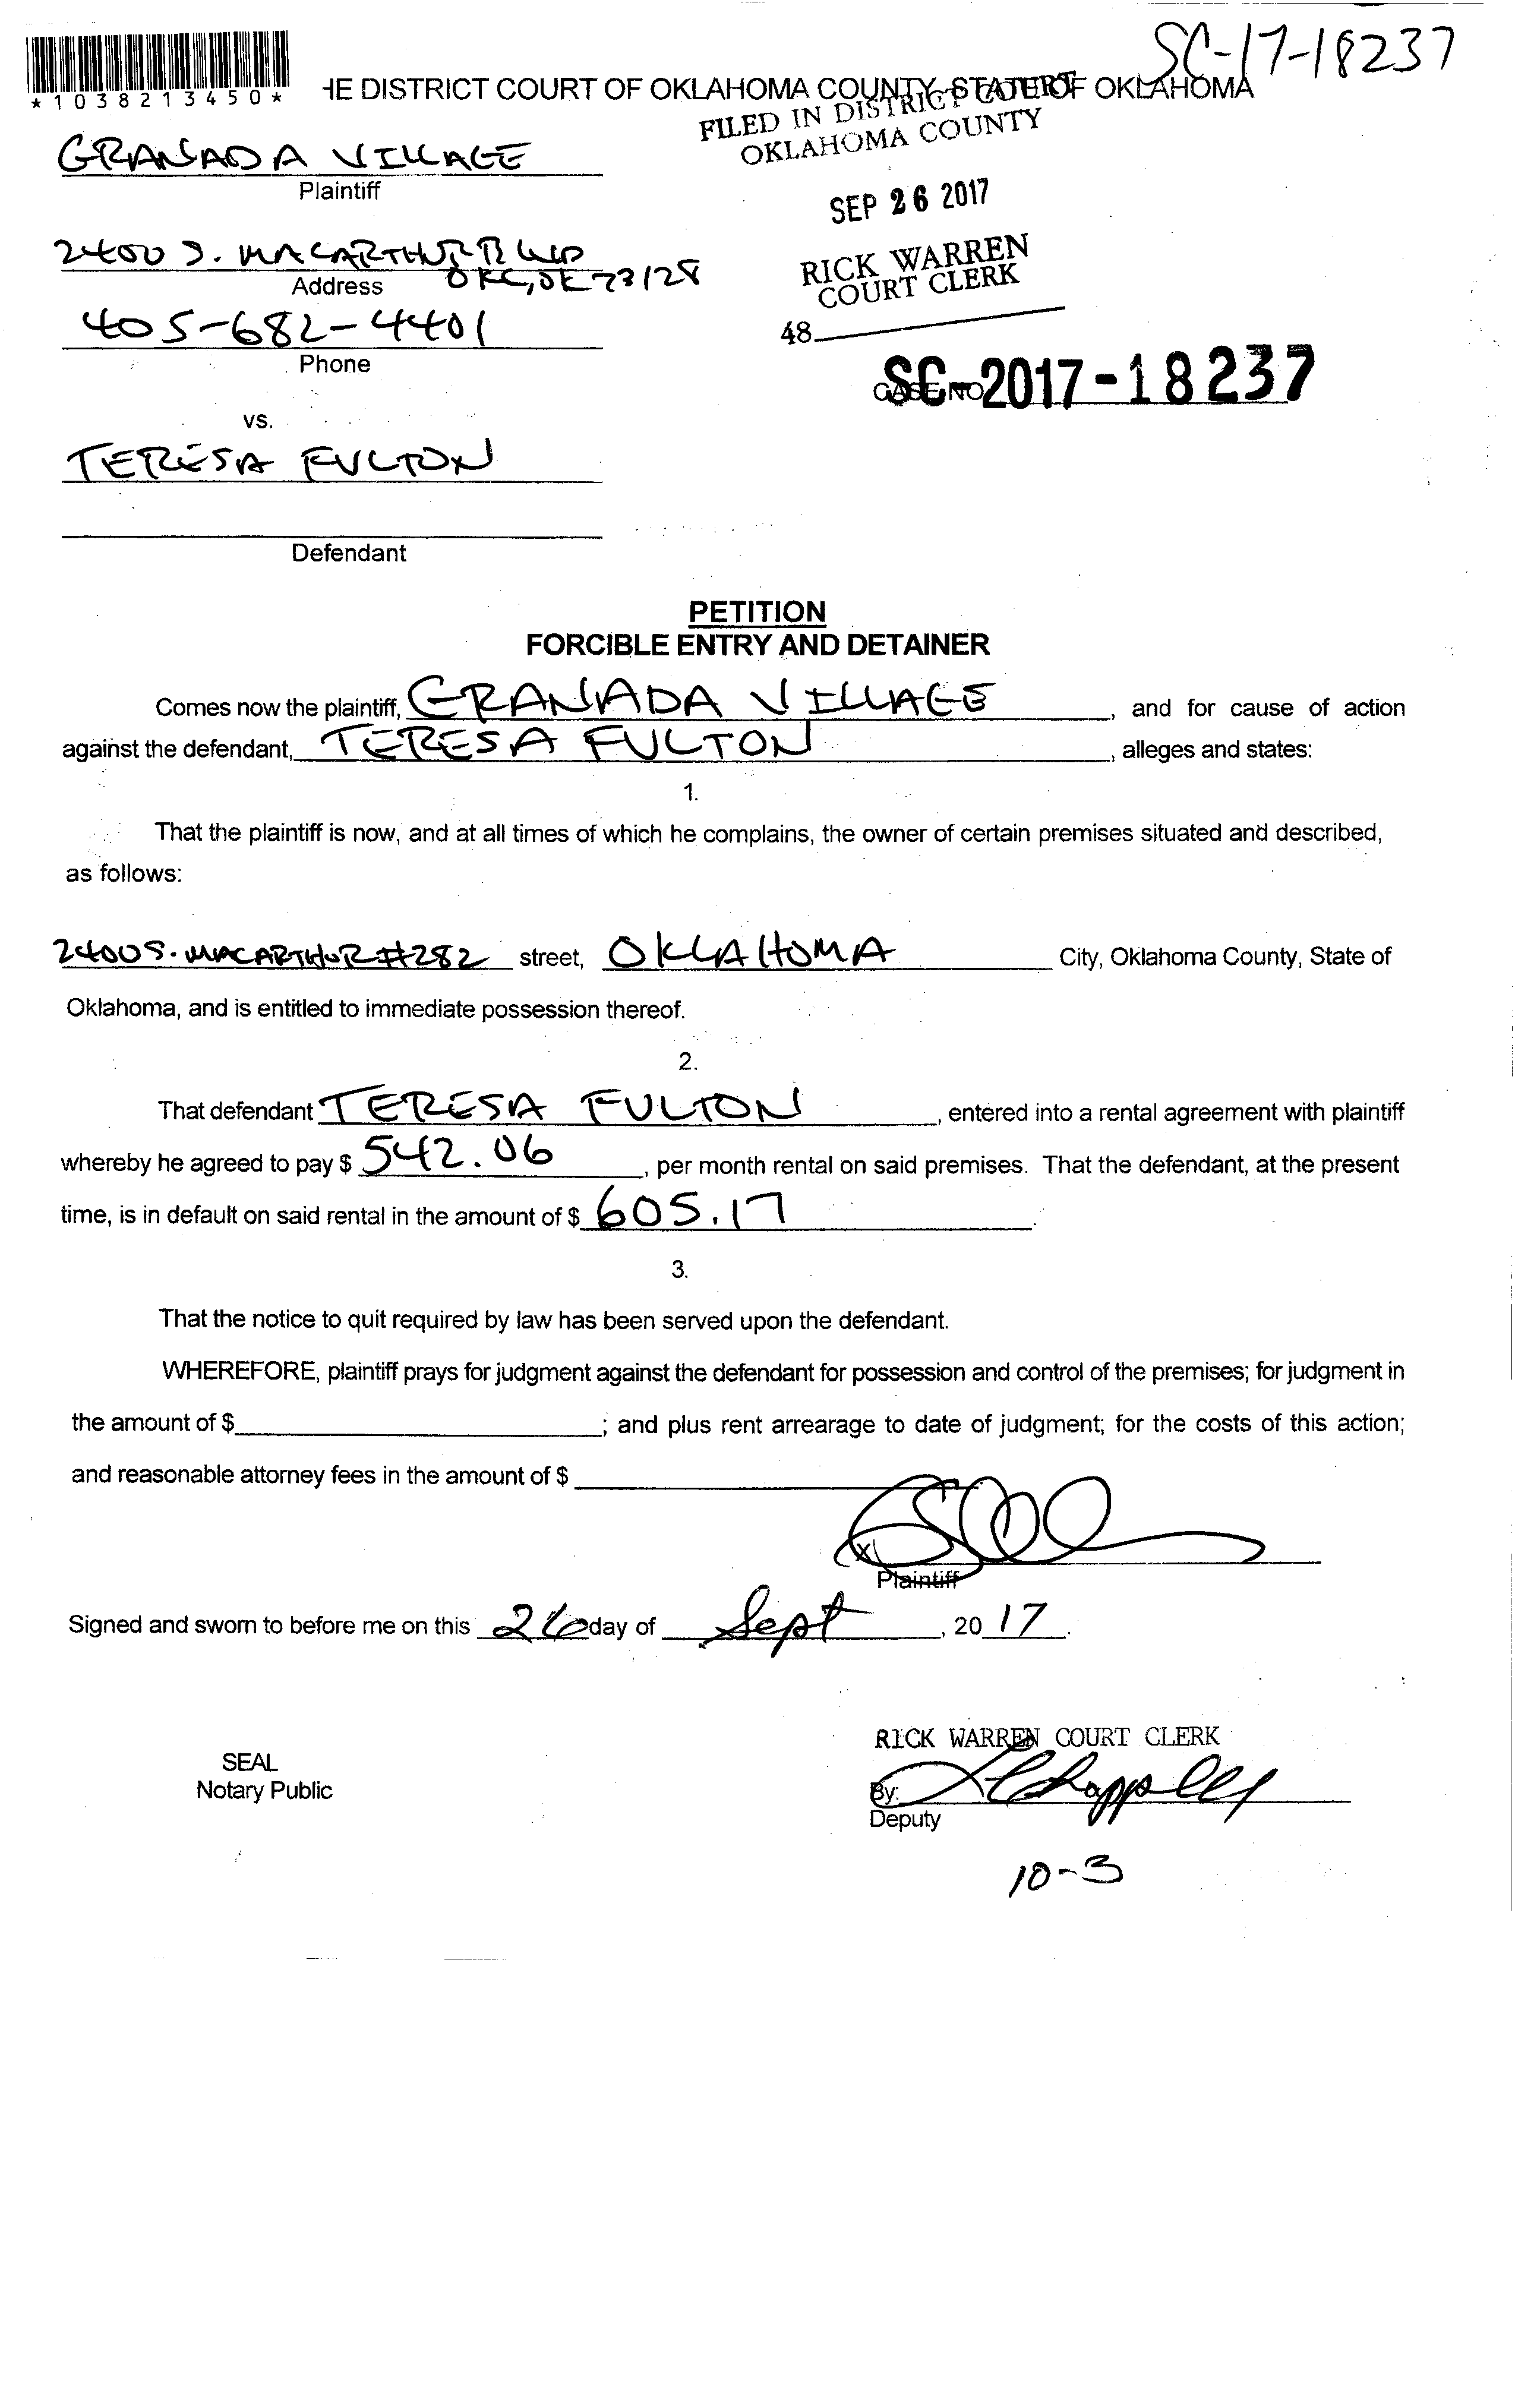 SC-17-18237
*1038213450*
HE DISTRICT COURT OF OKLAHOMA COUNTY, STATE OF OKLAHOMA
FILED IN DISTRICT COURT
OKLAHOMA COUNTY
GRANADA VILLAGE
Plaintiff
SEP 26 2017
2400 S. MACARTHUR BLVD
OKC, OK 73128
Address
RICK WARREN
COURT CLERK
405-682-4401
Phone
48
SC-2017-18237
CASE NO
vs.
TERESA FULTON
Defendant
PETITION
FORCIBLE ENTRY AND DETAINER
Comes now the plaintiff, GRANADA VILLAGE, and for cause of action
against the defendant, TERESA FULTON, alleges and states:
1.
That the plaintiff is now, and at all times of which he complains, the owner of certain premises situated and described,
as follows:
2400 S. MACARTHUR #282 street, OKLAHOMA City, Oklahoma County, State of
Oklahoma, and is entitled to immediate possession thereof.
2.
That defendant TERESA FULTON, entered into a rental agreement with plaintiff
whereby he agreed to pay $ 542.06, per month rental on said premises. That the defendant, at the present
time, is in default on said rental in the amount of $ 605.17.
3.
That the notice to quit required by law has been served upon the defendant.
WHEREFORE, plaintiff prays for judgment against the defendant for possession and control of the premises; for judgment in
the amount of $; and plus rent arrearage to date of judgment; for the costs of this action;
and reasonable attorney fees in the amount of $
(X)
Plaintiff
Signed and sworn to before me on this 26 day of Sept, 2017.
RICK WARREN COURT CLERK
SEAL
Notary Public
By:
Deputy
10-3